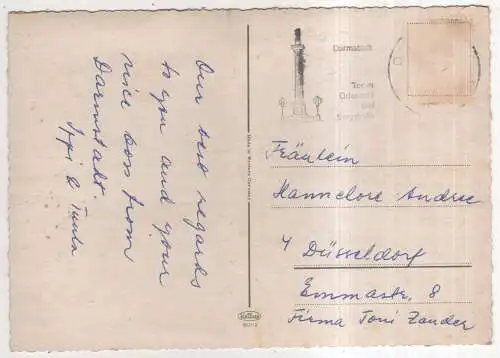 Our best regards
to you and your
nice boss from
Darmstadt.
&
Darmstadt
Tor zu
Odenwald
und
Bergstraße
Made in Western Germany
Fräulein
Hannelore Andree
4 Düsseldorf
Emmastr. 8
Firma Toni Zander